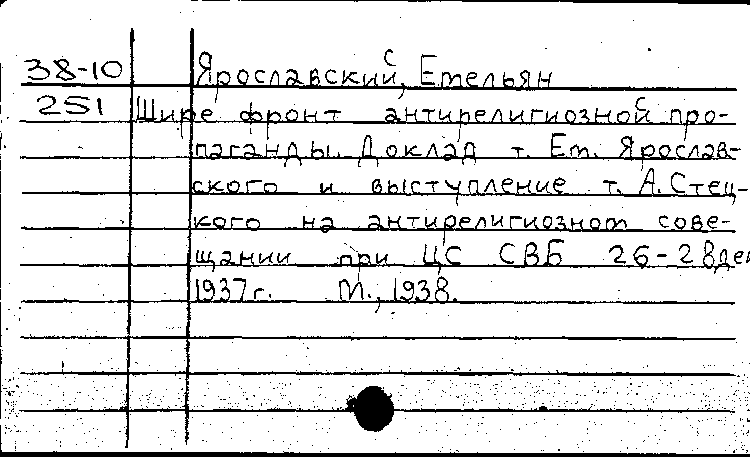 38-10 Ярославский, Емельян
251 Шире фронт антирелигиозной про-
паганды. Доклад т. Ем. Ярослав-
ского и выступление т. А. Стец-
кого на антирелигиозном сове-
щании при ЦС СВБ 26-28 дек
1937 г. М., 1938.